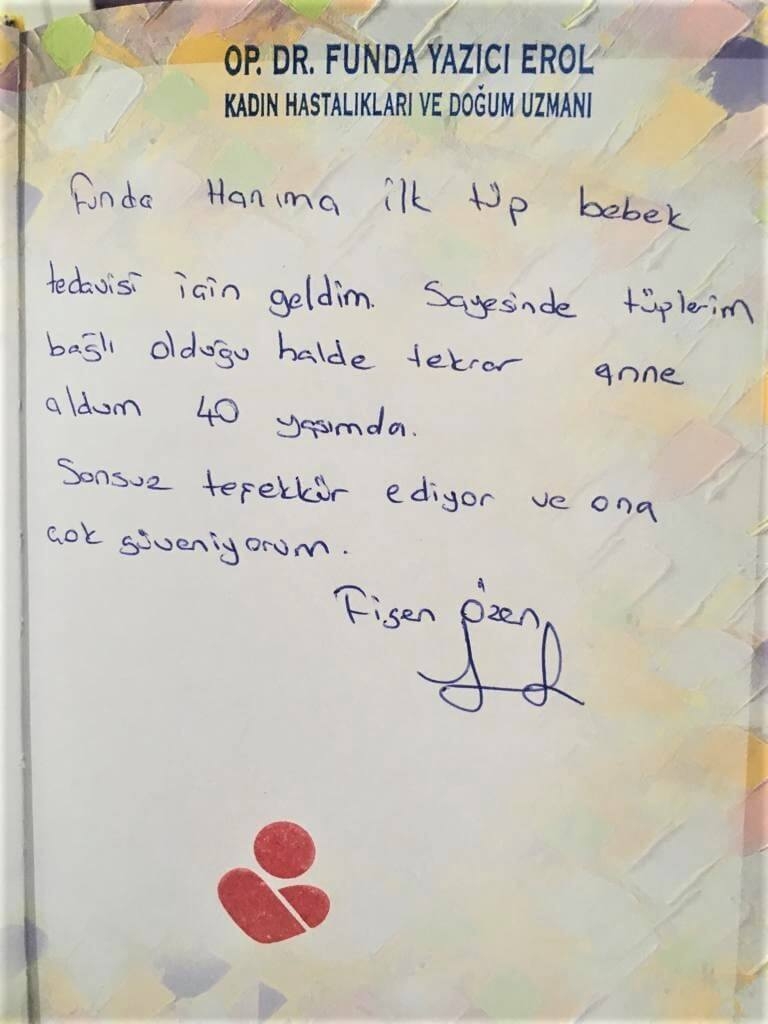 OP. DR. FUNDA YAZICI EROL
KADIN HASTALIKLARI VE DOĞUM UZMANI
Funda Hanıma ilk tüp bebek
tedavisi için geldim. Sayesinde tüplerim
bağlı olduğu halde tekrar anne
oldum 40 yaşımda.
Sonsuz teşekkür ediyor ve ona
çok güveniyorum.
Fişen Özen